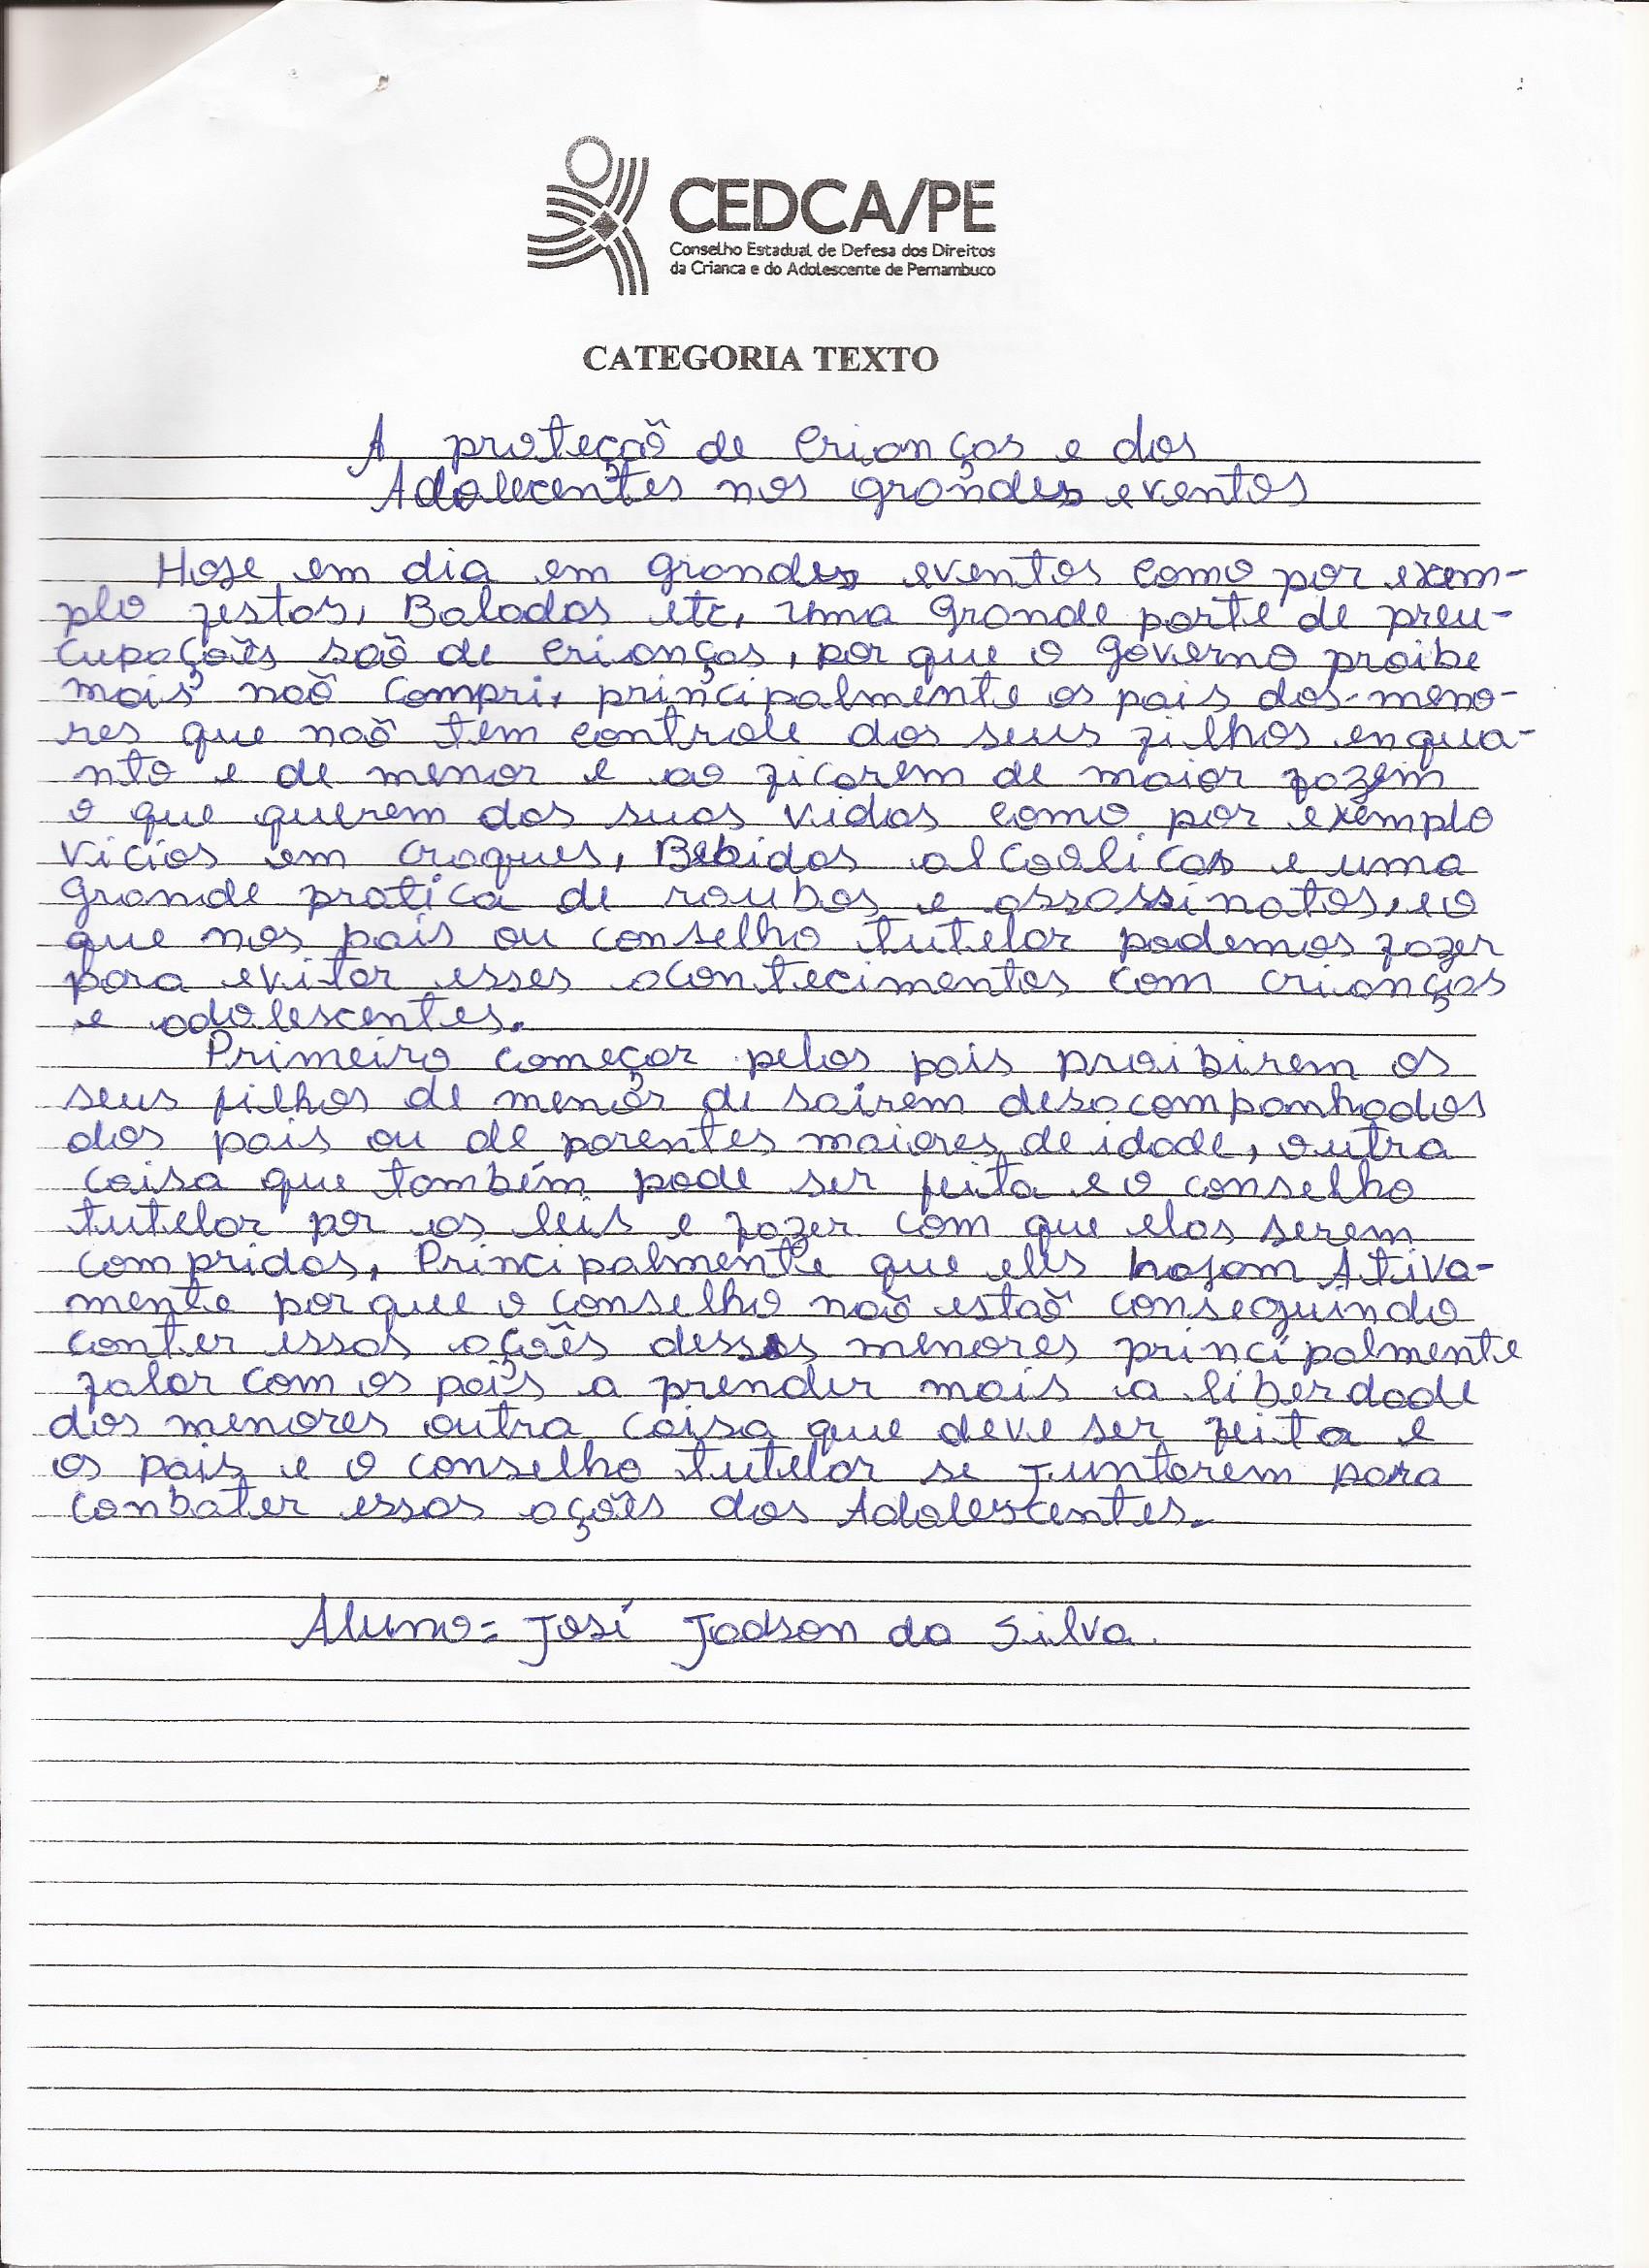 CEDCA/PE
Conselho Estadual de Defesa dos Direitos
da Crianca e do Adolescente de Pernambuco
CATEGORIA TEXTO
A proteçaõ de Crianças e dos
Adolecentes nos grandes eventos
Hoje em dia em grandes eventos como por exem-
plo festas, Baladas etc, uma Grande parte de preu-
cupaçoẽs saõ de crianças, por que o governo proibe
mais naõ compri, principalmente os pais dos meno-
res que naõ tem controle dos seus filhos enqua-
nto e de menor e ao ficarem de maior fazem
o que querem das suas vidas como por exemplo
vicios em craques, Bebidas alcoólicas e uma
grande pratica de roubos e assassinatos, e o
que nos pais ou conselho tutelar podemos fazer
para evitar esses acontecimentos com crianças
e adolescentes.
Primeiro começar pelos pais proibirem os
seus filhos de menor di sairem desacompanhados
dos pais ou de parentes maiores de idade, outra
coisa que também pode ser feita e o conselho
tutelar por as leis e fazer com que elas serem
compridas, Principalmente que eles hajam Ativa-
mente por que o conselho naõ estaõ conseguindo
conter essas açoẽs desses menores principalmente
falar com os pais a prender mais a liberdade
dos menores outra coisa que deve ser feita e
os pais e o conselho tutelar se juntarem para
conbater essas açoẽs dos Adolescentes.
Aluno= José Jadson da Silva.